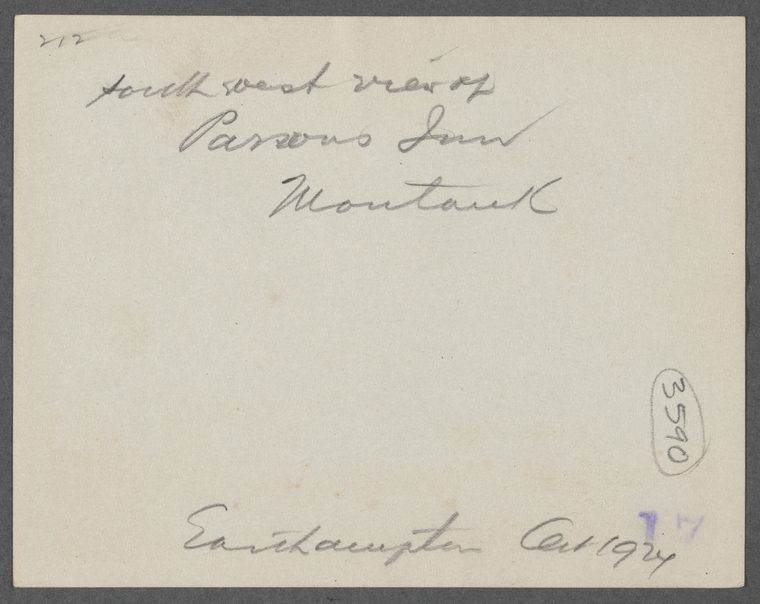 212
southwest view of
Parsons Inn
Montauk
3590
17
Easthampton Oct 1924